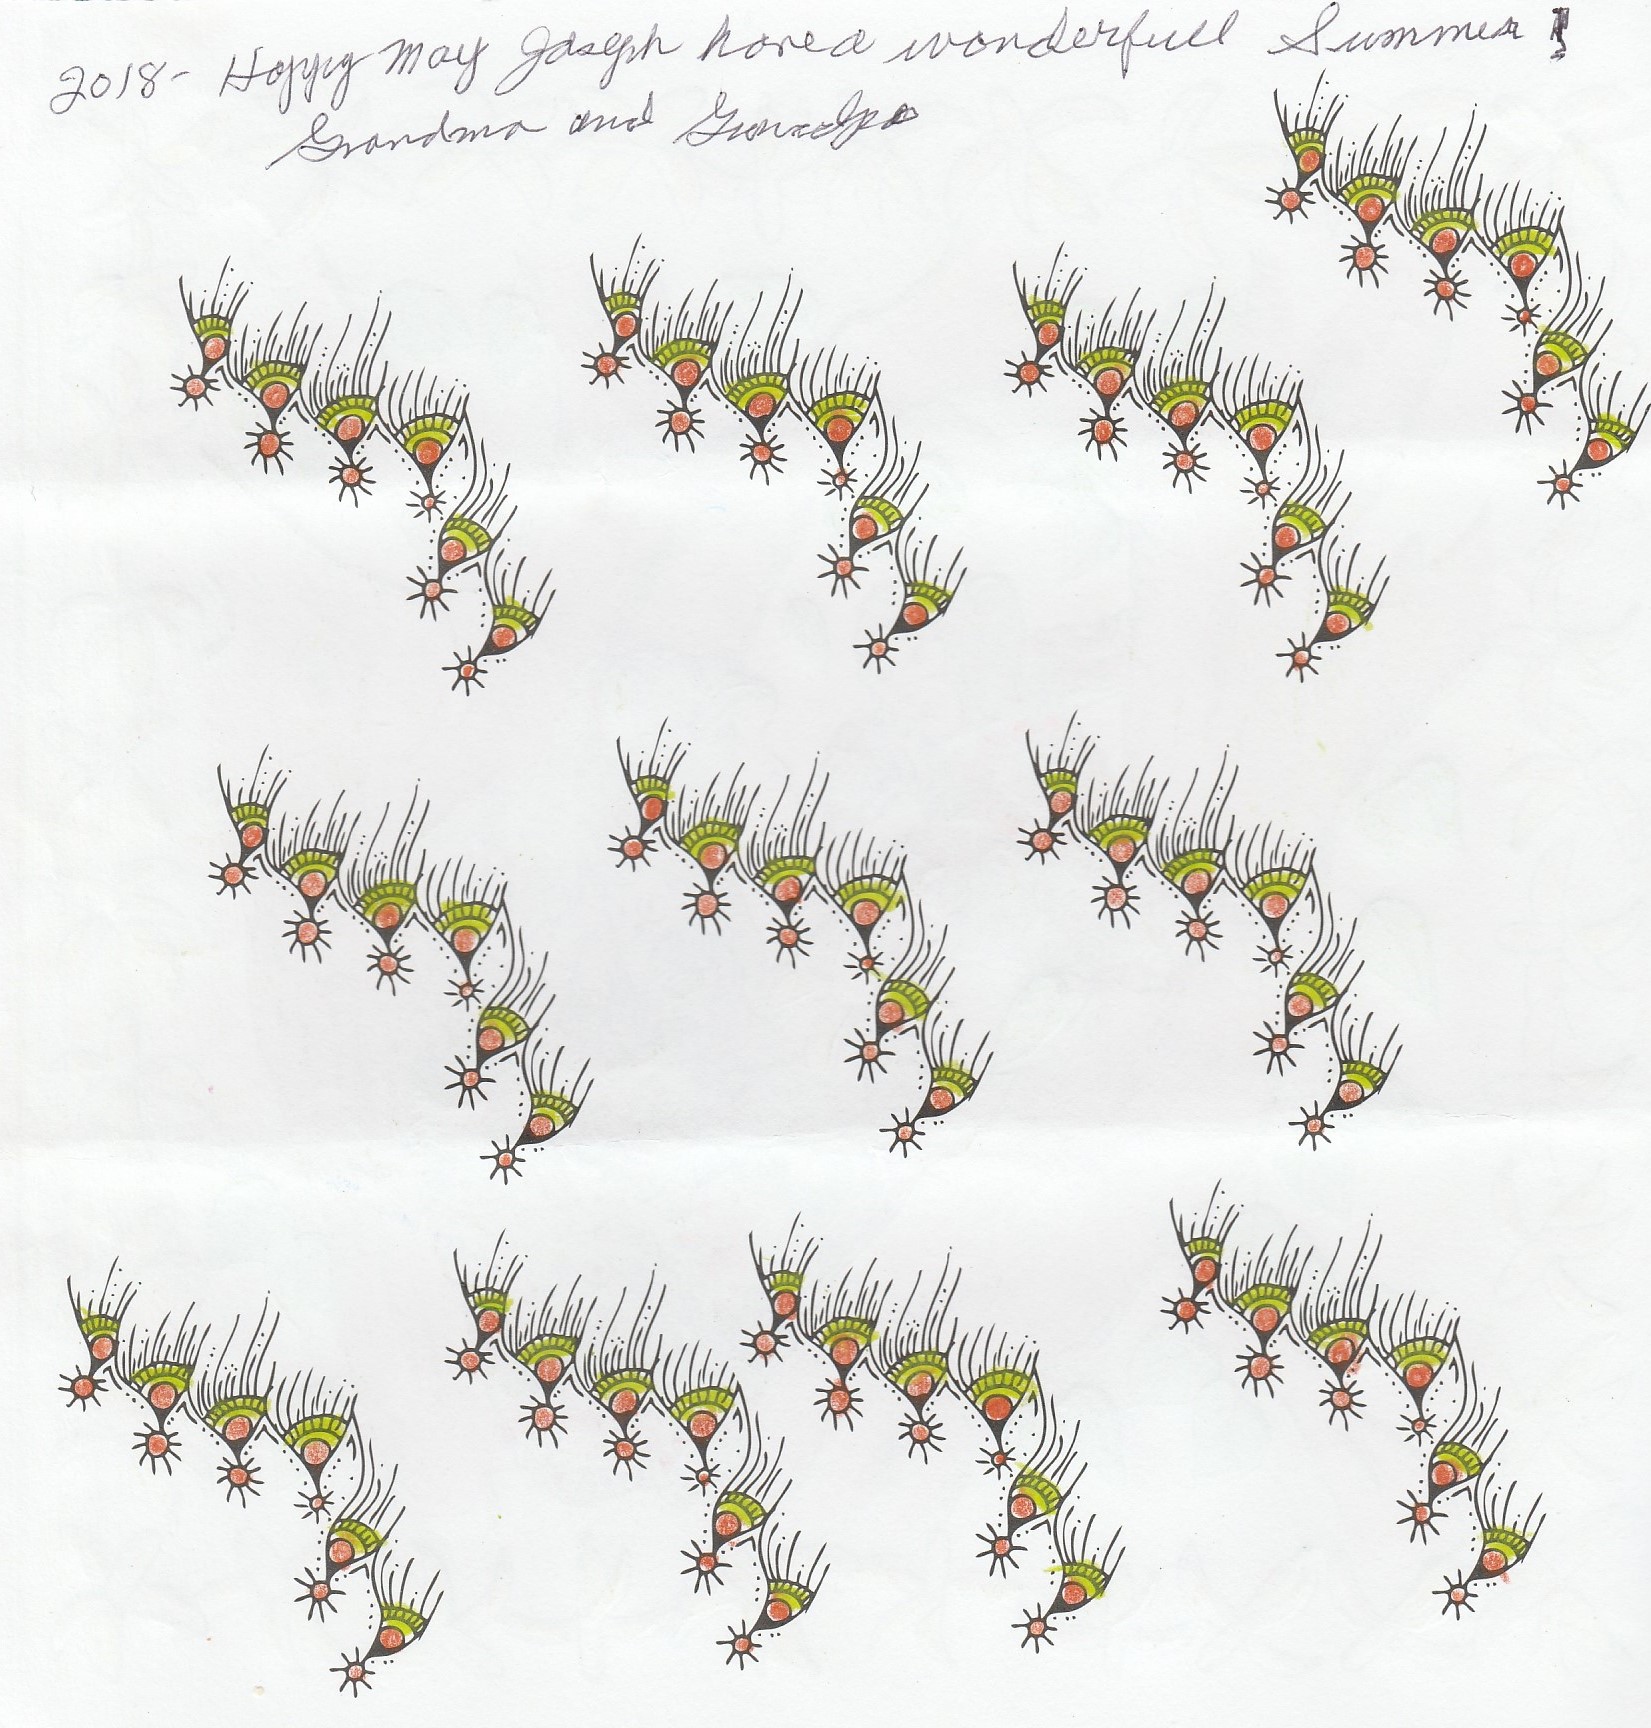 2018- Happy May Joseph have a wonderfull Summer!
Grandma and Grandpa